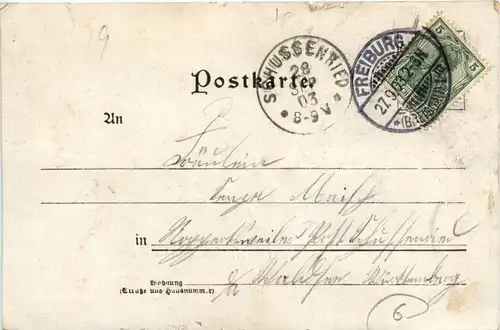 9
SCHUSSENRIED
28
SEP
03
8-9 V
FREIBURG
27.9.03.2-3N
(BREISGAU)
5 5
Postkarte.
An
Fräulein
in
Post Schussenried
Waldsee Württemberg
Wohnung
(Straße und Hausnummer)
6